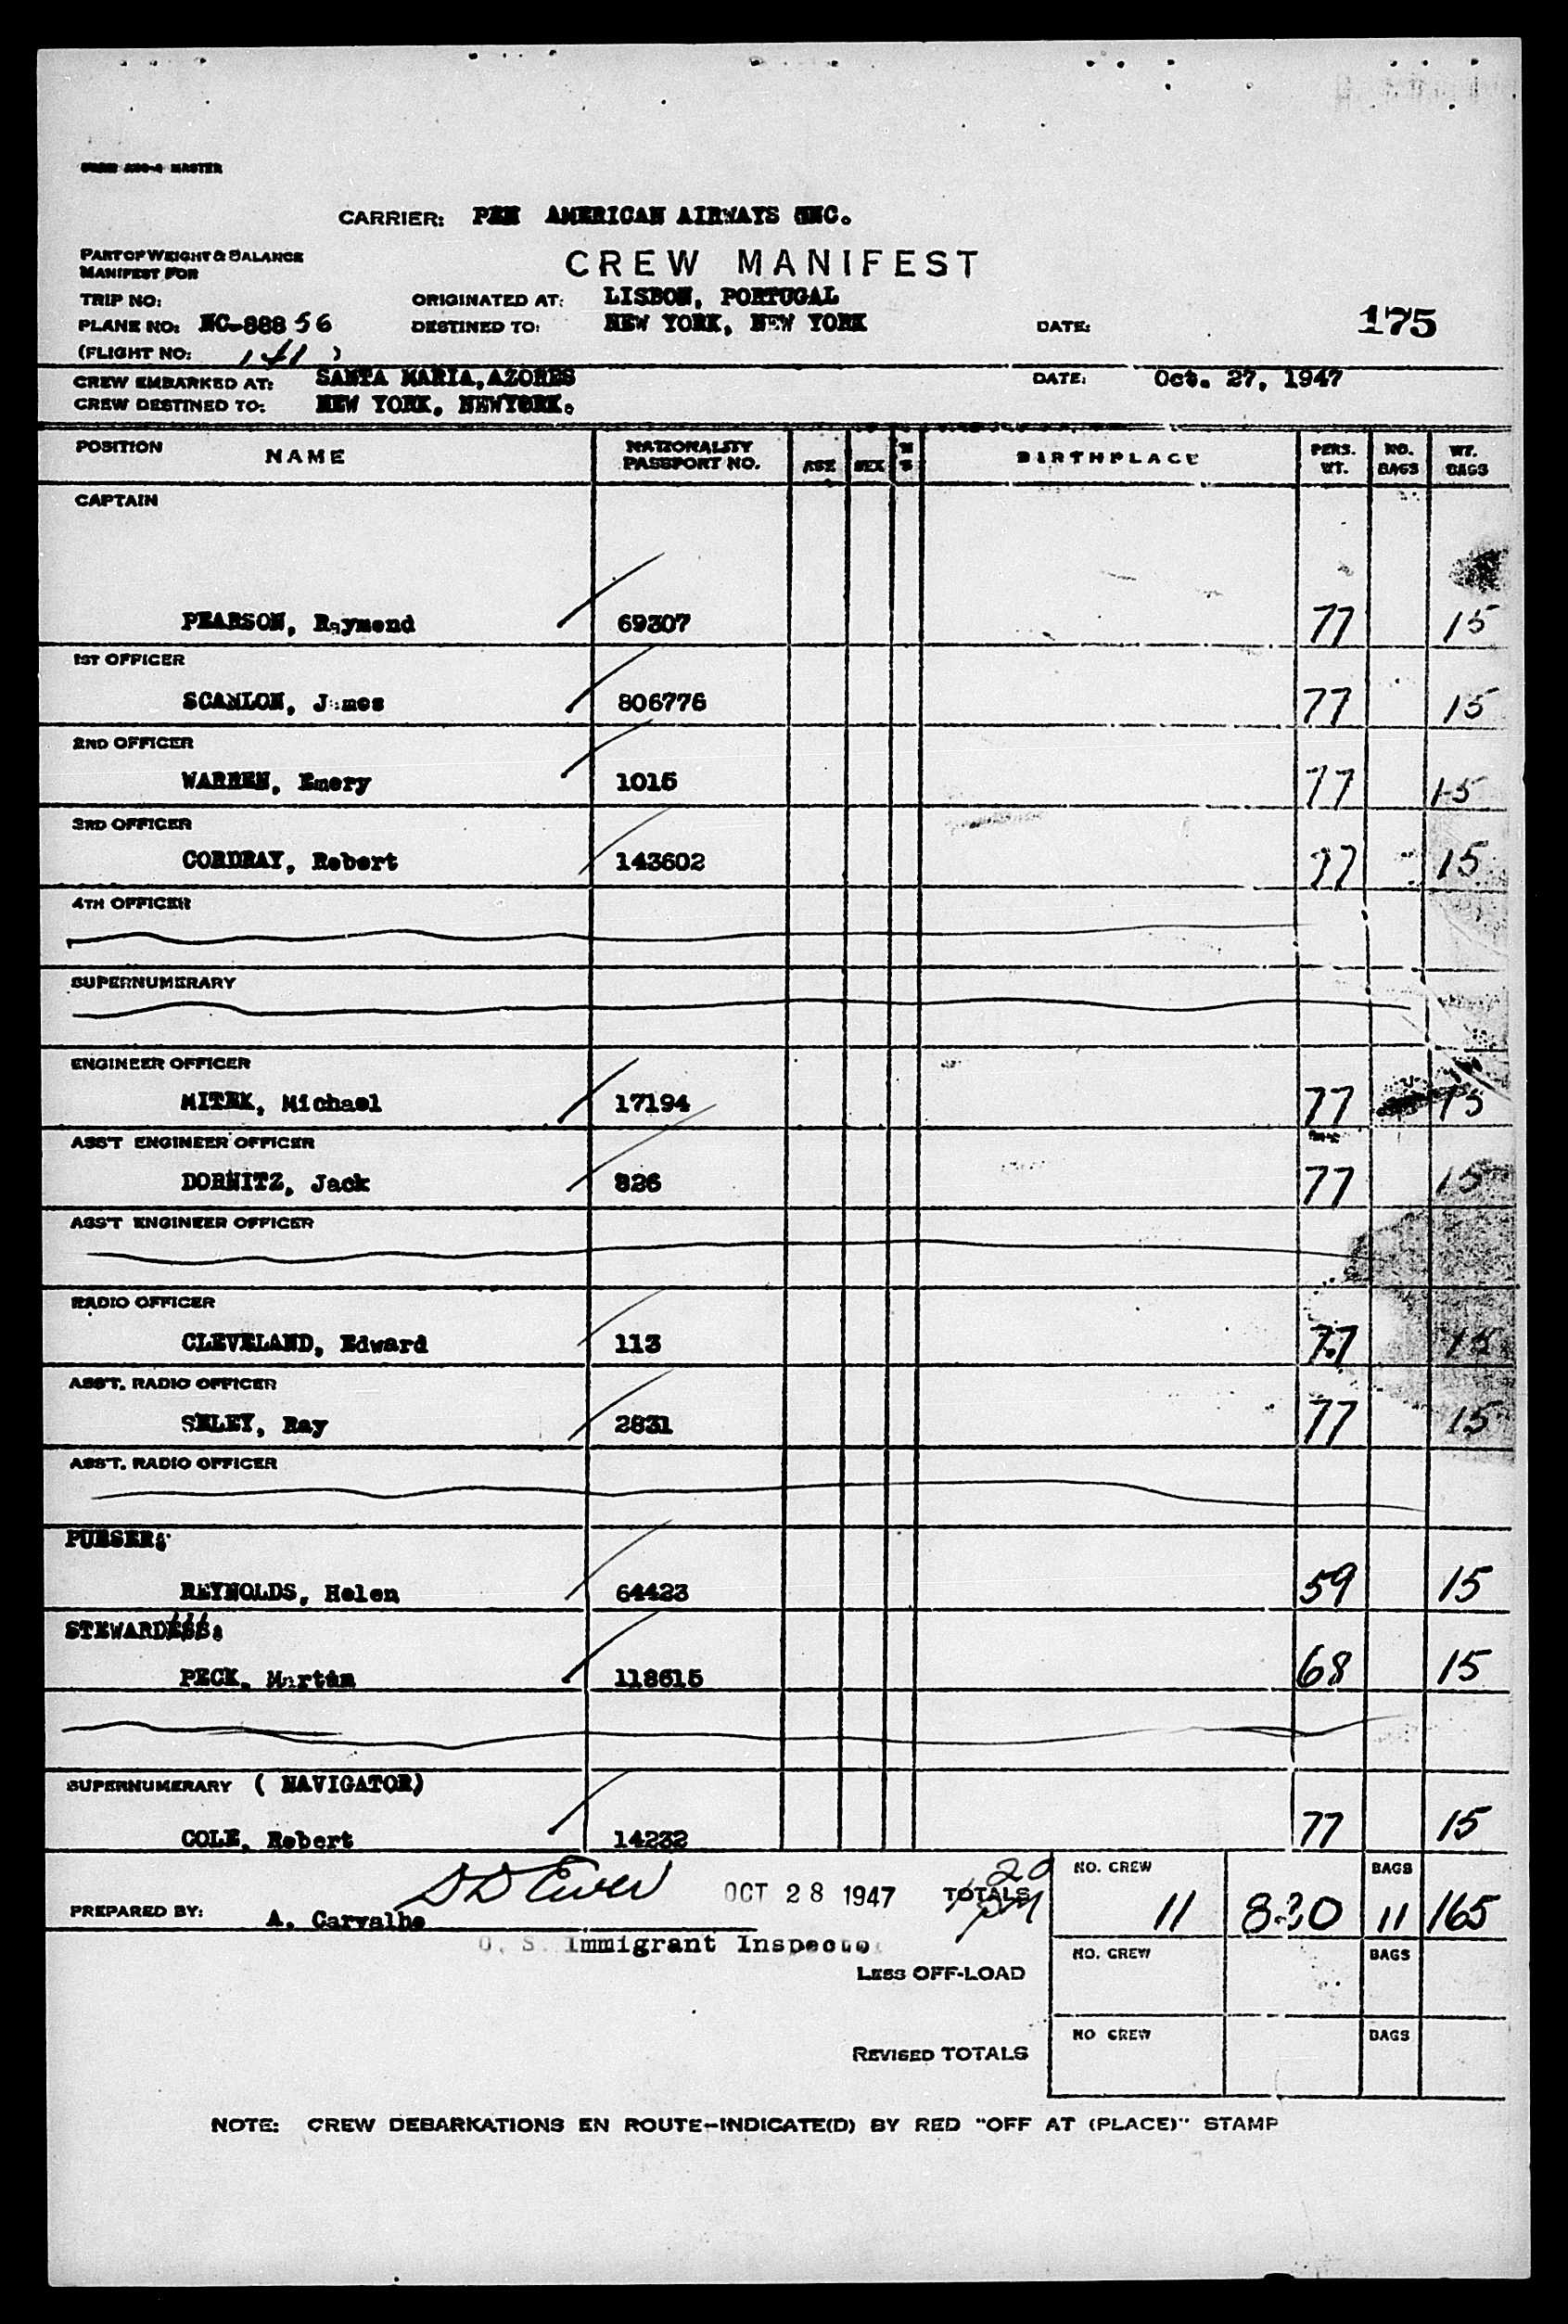 CARRIER: PAN AMERICAN AIRWAYS INC.
PART OF WEIGHT & BALANCE
MANIFEST FOR
CREW MANIFEST
TRIP NO: ORIGINATED AT: LISBON, PORTUGAL
PLANE NO: NC-88856 DESTINED TO: NEW YORK, NEW YORK DATE: 175
(FLIGHT NO: 141 )
CREW EMBARKED AT: SANTA MARIA, AZORES DATE: Oct. 27, 1947
CREW DESTINED TO: NEW YORK, NEWYORK.
POSITION NAME NATIONALITY PASSPORT NO. AGE SEX M S BIRTHPLACE PERS. WT. NO. BAGS WT. BAGS
CAPTAIN
PEARSON, Raymond 69307 77 15
1ST OFFICER
SCANLON, James 806776 77 15
2ND OFFICER
WARREN, Emery 1015 77 15
3RD OFFICER
CORDRAY, Robert 143602 77 15
4TH OFFICER
SUPERNUMERARY
ENGINEER OFFICER
MITEK, Michael 17194 77 15
ASS'T ENGINEER OFFICER
DORNITZ, Jack 826 77 15
ASS'T ENGINEER OFFICER
RADIO OFFICER
CLEVELAND, Edward 113 77 15
ASS'T. RADIO OFFICER
SELEY, Ray 2831 77 15
ASS'T. RADIO OFFICER
PURSER:
REYNOLDS, Helen 64423 59 15
STEWARD
PECK, Martin 118615 68 15
SUPERNUMERARY ( NAVIGATOR)
COLE, Robert 14232 77 15
OCT 28 1947 TOTALS NO. CREW 11 820 BAGS 11 165
PREPARED BY: A. Carvalho
U. S. Immigrant Inspector
LESS OFF-LOAD NO. CREW BAGS
REVISED TOTALS NO CREW BAGS
NOTE: CREW DEBARKATIONS EN ROUTE-INDICATE(D) BY RED "OFF AT (PLACE)" STAMP